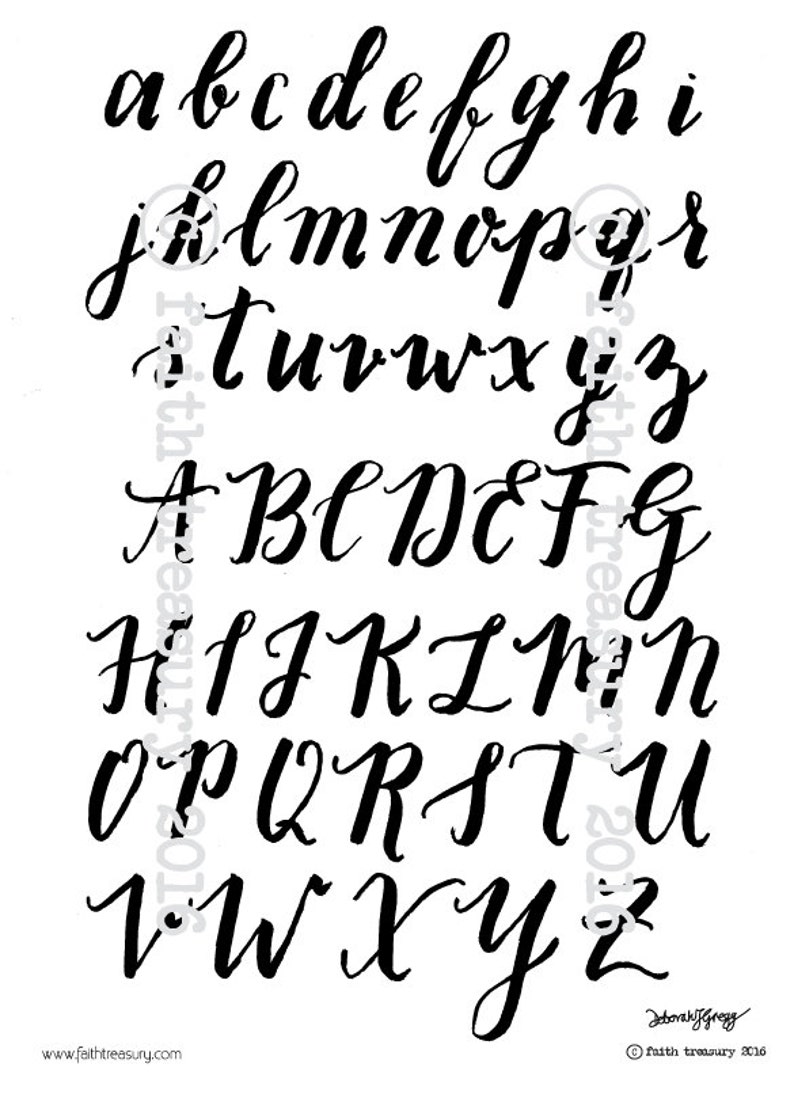 a b c d e f g h i
j k l m n o p q r
s t u v w x y z
A B C D E F G
H I J K L M N
O P Q R S T U
V W X Y Z
© faith treasury 2016
© faith treasury 2016
Deborah J Gregg
www.faithtreasury.com
© faith treasury 2016